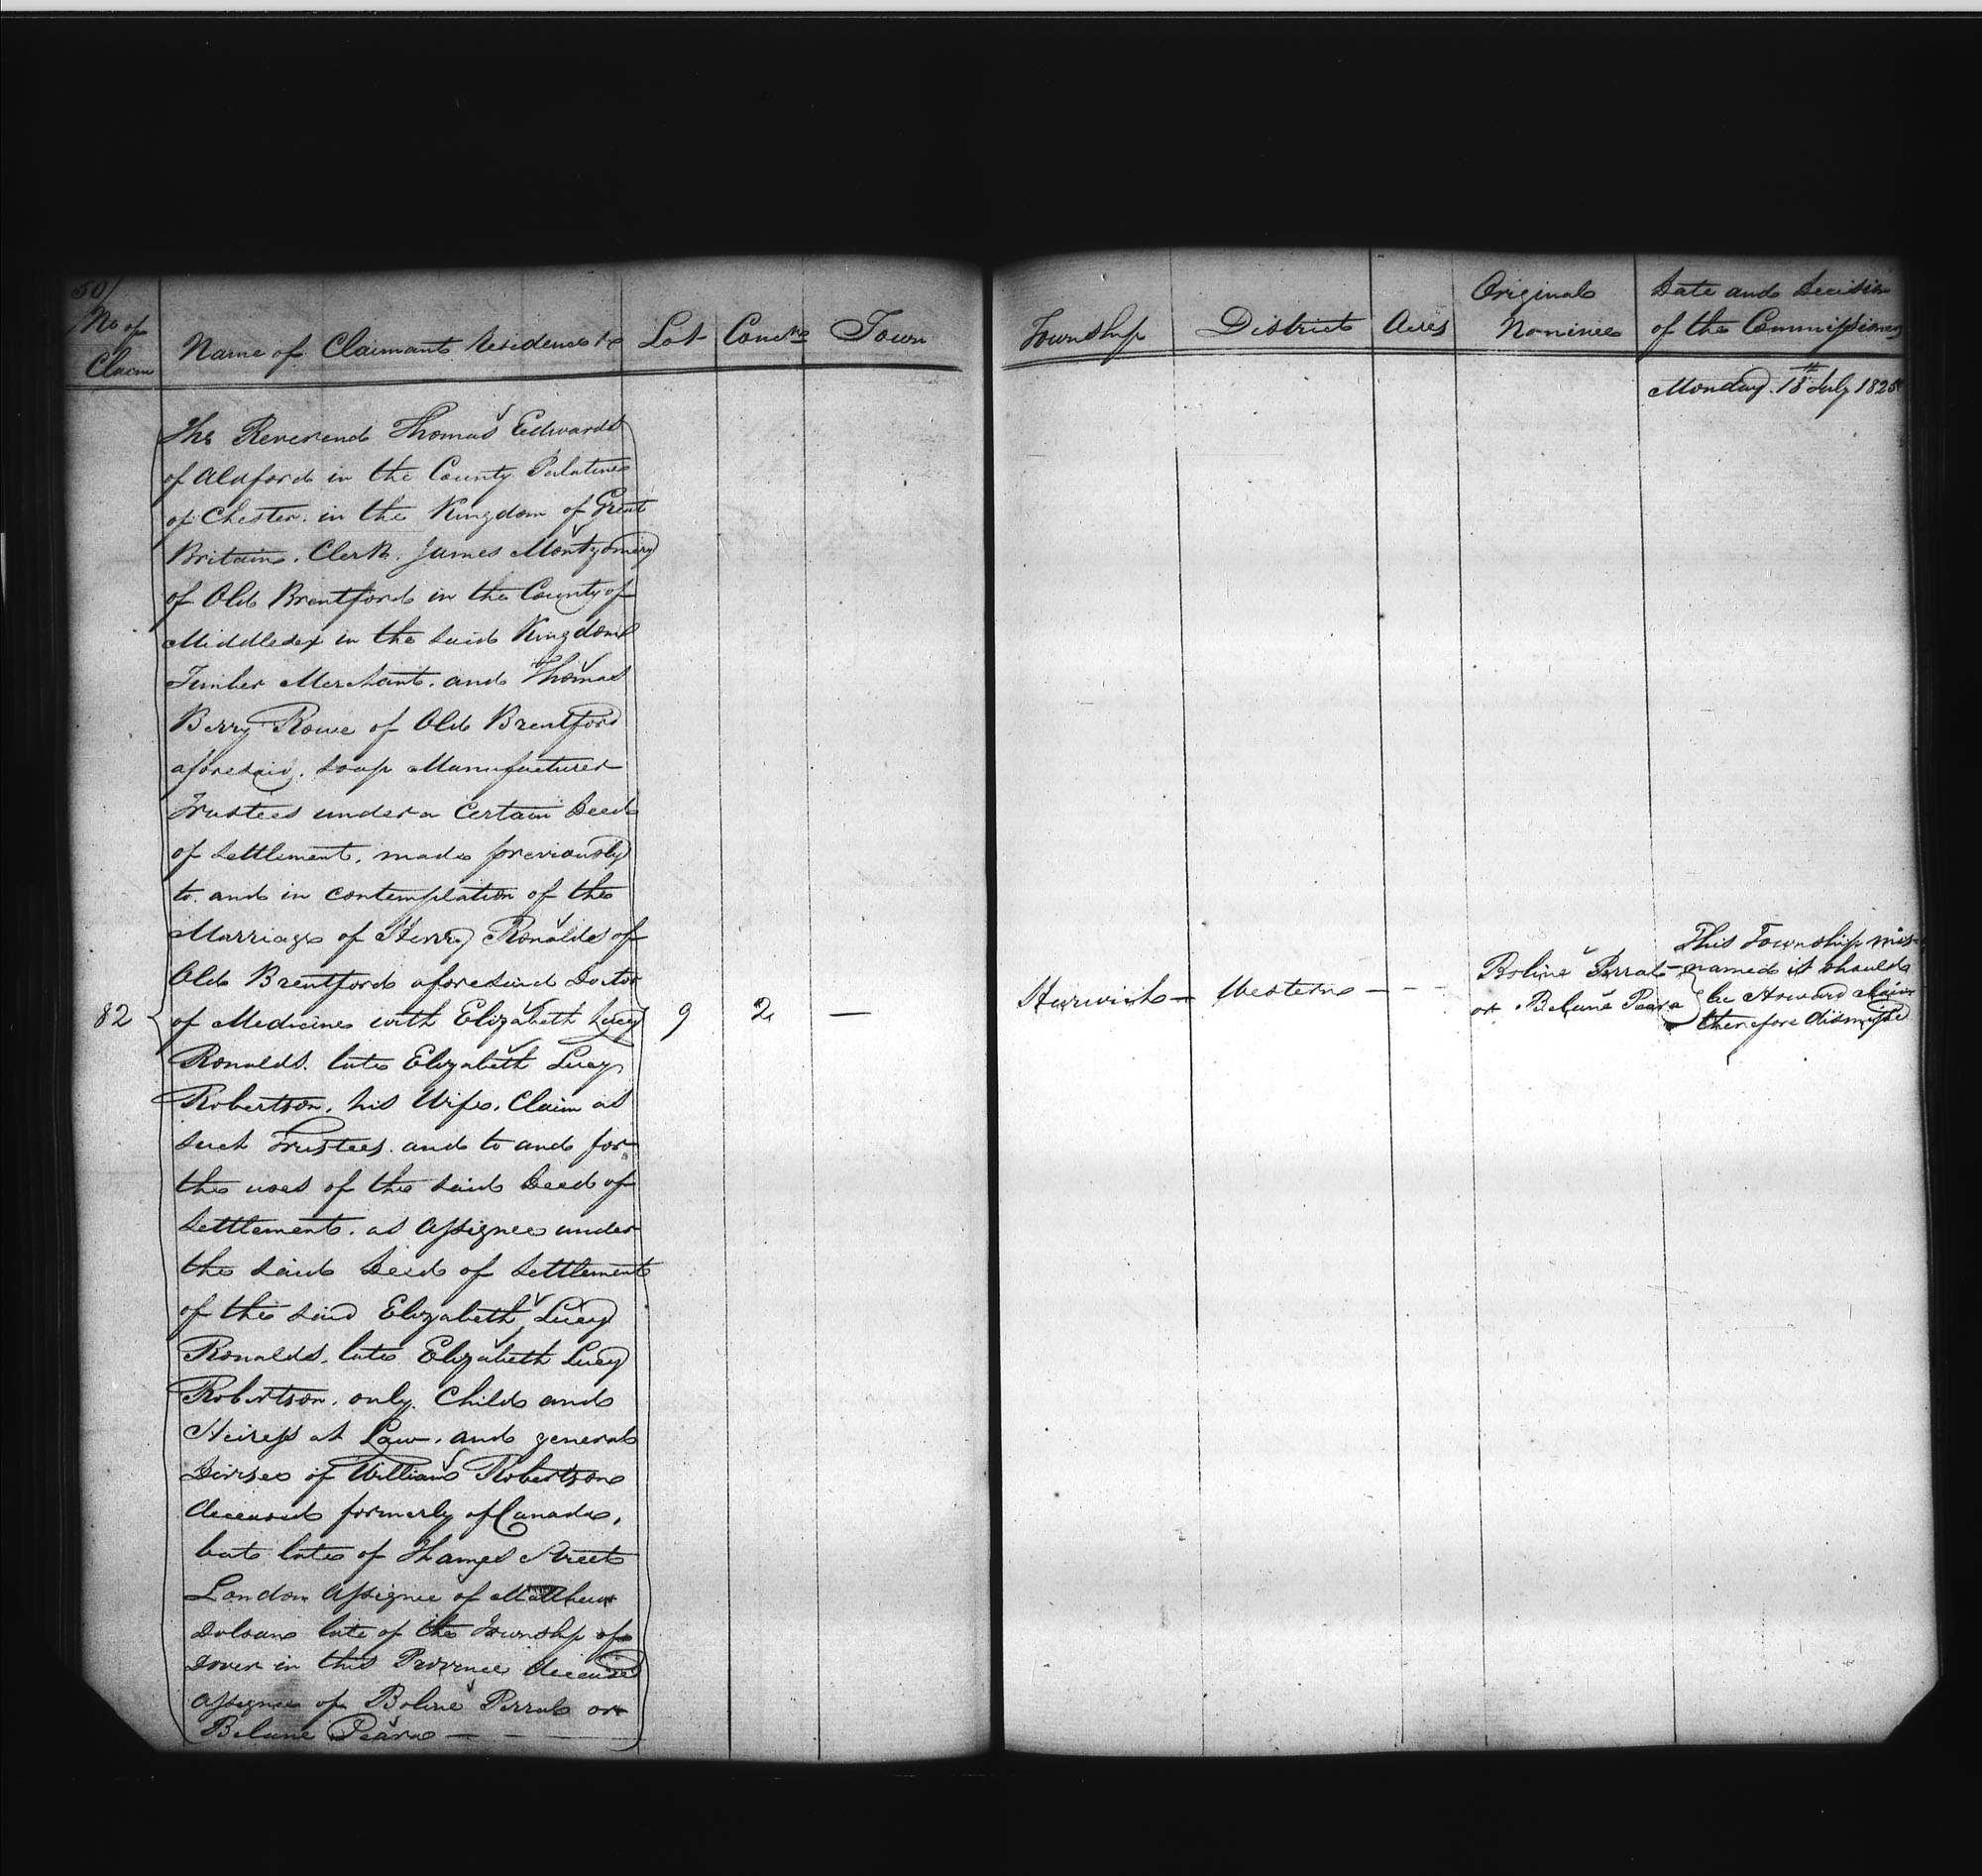 50/
No of
Claim
Name of Claimant Residence &c
Lot
Conc.
Town
Township
District
Acres
Original
Nominee
Date and Decision
of the Commissioners
Monday 18th July 1825
The Reverend Thomas Edwards
of Aldford in the County Palatine
of Chester in the Kingdom of Great
Britain. Clerk. James Montgomery
of Old Brentford in the County of
Middlesex in the said Kingdom
Timber Merchant. and Thomas
Berry Rowe of Old Brentford
aforesaid. Soap Manufacturer
Trustees under a Certain Deed
of Settlement. made previously
to. and in contemplation of the
Marriage of Henry Ronalds of
Old Brentford aforesaid Doctor
of Medicine with Elizabeth Lucy
Ronalds. late Elizabeth Lucy
Robertson. his Wife. Claim as
such Trustees. and to and for
the uses of the said Deed of
Settlement. as Assignee under
the said Deed of Settlement
of the said Elizabeth Lucy
Ronalds. late Elizabeth Lucy
Robertson. only. Child and
Heiress at Law. and general
Devisee of William Robertson
deceased formerly of Canada,
but late of Thames Street
London Assignee of Matthew
Dolsane late of the Township of
Dover in this Province deceased
Assignee of Boline Perral or
Belune Peara
82
9
2
—
Harwich
Western
Boline Perral
or Belune Peara
This Township mis-
named it should
be Howard Claim
therefore dismissed